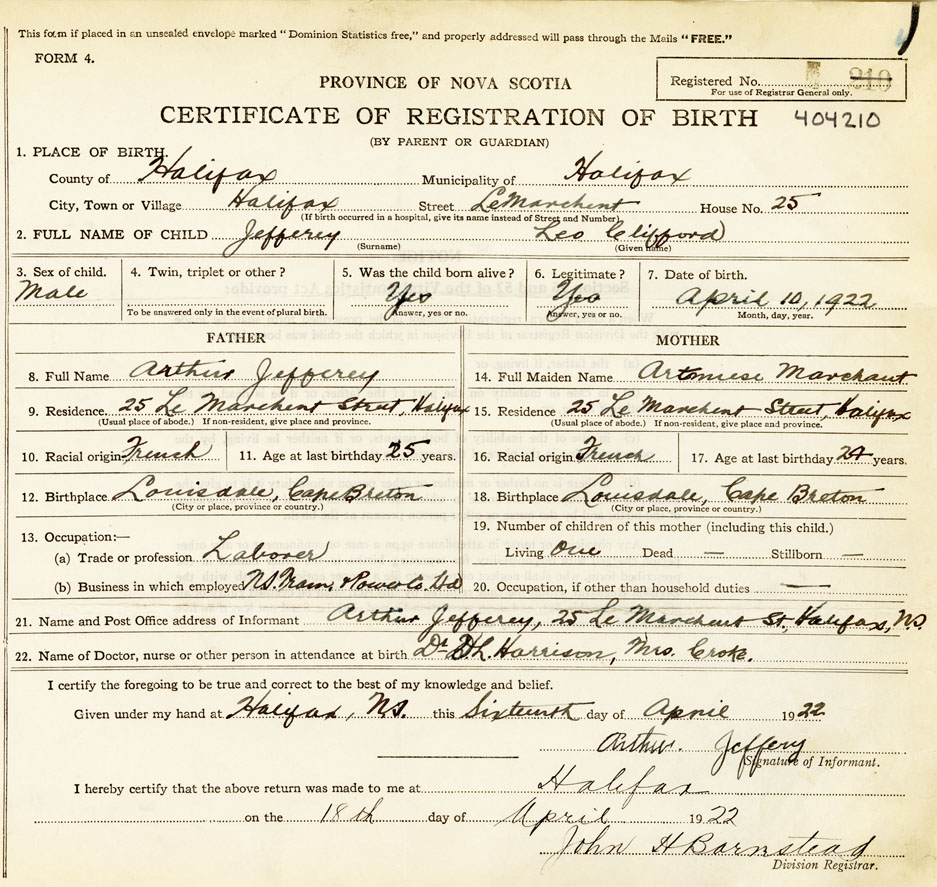 This form if placed in an unsealed envelope marked "Dominion Statistics free," and properly addressed will pass through the Mails "FREE."
FORM 4.
Registered No. 210
For use of Registrar General only.
PROVINCE OF NOVA SCOTIA
CERTIFICATE OF REGISTRATION OF BIRTH 404210
(BY PARENT OR GUARDIAN)
1. PLACE OF BIRTH.
County of Halifax Municipality of Halifax
City, Town or Village Halifax Street LeMarchent House No. 25
(If birth occurred in a hospital, give its name instead of Street and Number)
2. FULL NAME OF CHILD Jefferey Leo Clifford
(Surname) (Given name)
3. Sex of child. 4. Twin, triplet or other? 5. Was the child born alive? 6. Legitimate? 7. Date of birth.
Male Yes Yes April 10, 1922
To be answered only in the event of plural birth. Answer, yes or no. Answer, yes or no. Month, day, year.
FATHER MOTHER
8. Full Name Arthur Jefferey 14. Full Maiden Name Marchant
9. Residence 25 Le Marchent Street, Halifax 15. Residence 25 Le Marchent Street, Halifax
(Usual place of abode.) If non-resident, give place and province. (Usual place of abode.) If non-resident, give place and province.
10. Racial origin French 11. Age at last birthday 25 years. 16. Racial origin French 17. Age at last birthday 24 years.
12. Birthplace Louisdale, Cape Breton 18. Birthplace Louisdale, Cape Breton
(City or place, province or country.) (City or place, province or country.)
13. Occupation:— 19. Number of children of this mother (including this child.)
(a) Trade or profession Laborer Living One Dead — Stillborn —
(b) Business in which employed N.S. Tram. & Power Co. Ltd 20. Occupation, if other than household duties —
21. Name and Post Office address of Informant Arthur Jefferey, 25 Le Marchent St, Halifax, N.S.
22. Name of Doctor, nurse or other person in attendance at birth Dr. Harrison, Mrs. Croke.
I certify the foregoing to be true and correct to the best of my knowledge and belief.
Given under my hand at Halifax, N.S. this Sixteenth day of April 1922
Arthur. Jeffery
Signature of Informant.
I hereby certify that the above return was made to me at Halifax
on the 18th day of April 1922
John H Barnstead
Division Registrar.